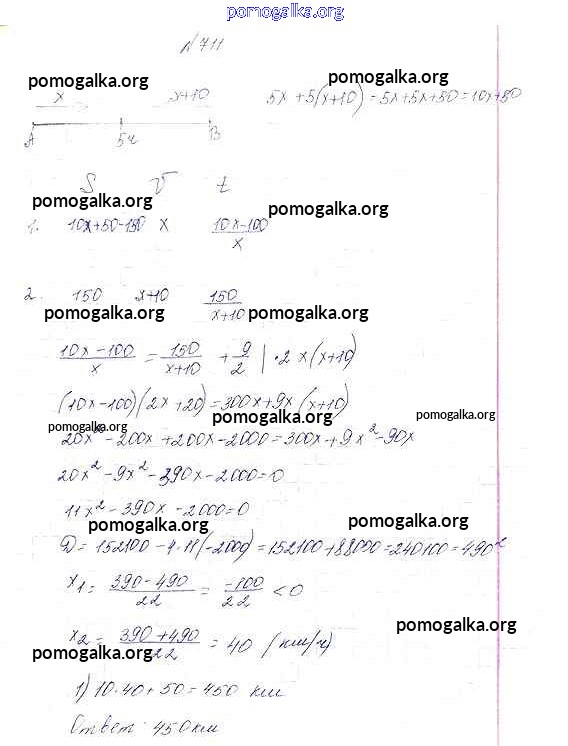 pomogalka.org
№ 711
pomogalka.org pomogalka.org
x x+10 5x+5(x+10)=5x+5x+50=10x+50
A 5ч B
S V t
pomogalka.org pomogalka.org
1. 10x+50-150 x (10x-100)/x
2. 150 x+10 150/(x+10)
pomogalka.org pomogalka.org
(10x-100)/x = 150/(x+10) + 9/2 | · 2x(x+10)
(10x-100)(2x+20)=300x+9x(x+10)
pomogalka.org pomogalka.org pomogalka.org
20x²-200x+200x-2000=300x+9x²-90x
20x²-9x²-390x-2000=0
11x²-390x-2000=0
pomogalka.org pomogalka.org
D=152100-4·11(-2000)=152100+88000=240100=490²
x1= (390-490)/22 = -100/22 <0
pomogalka.org
x2= (390+490)/22 = 40 (км/ч)
pomogalka.org
1) 10·40+50=450 км
Ответ: 450км